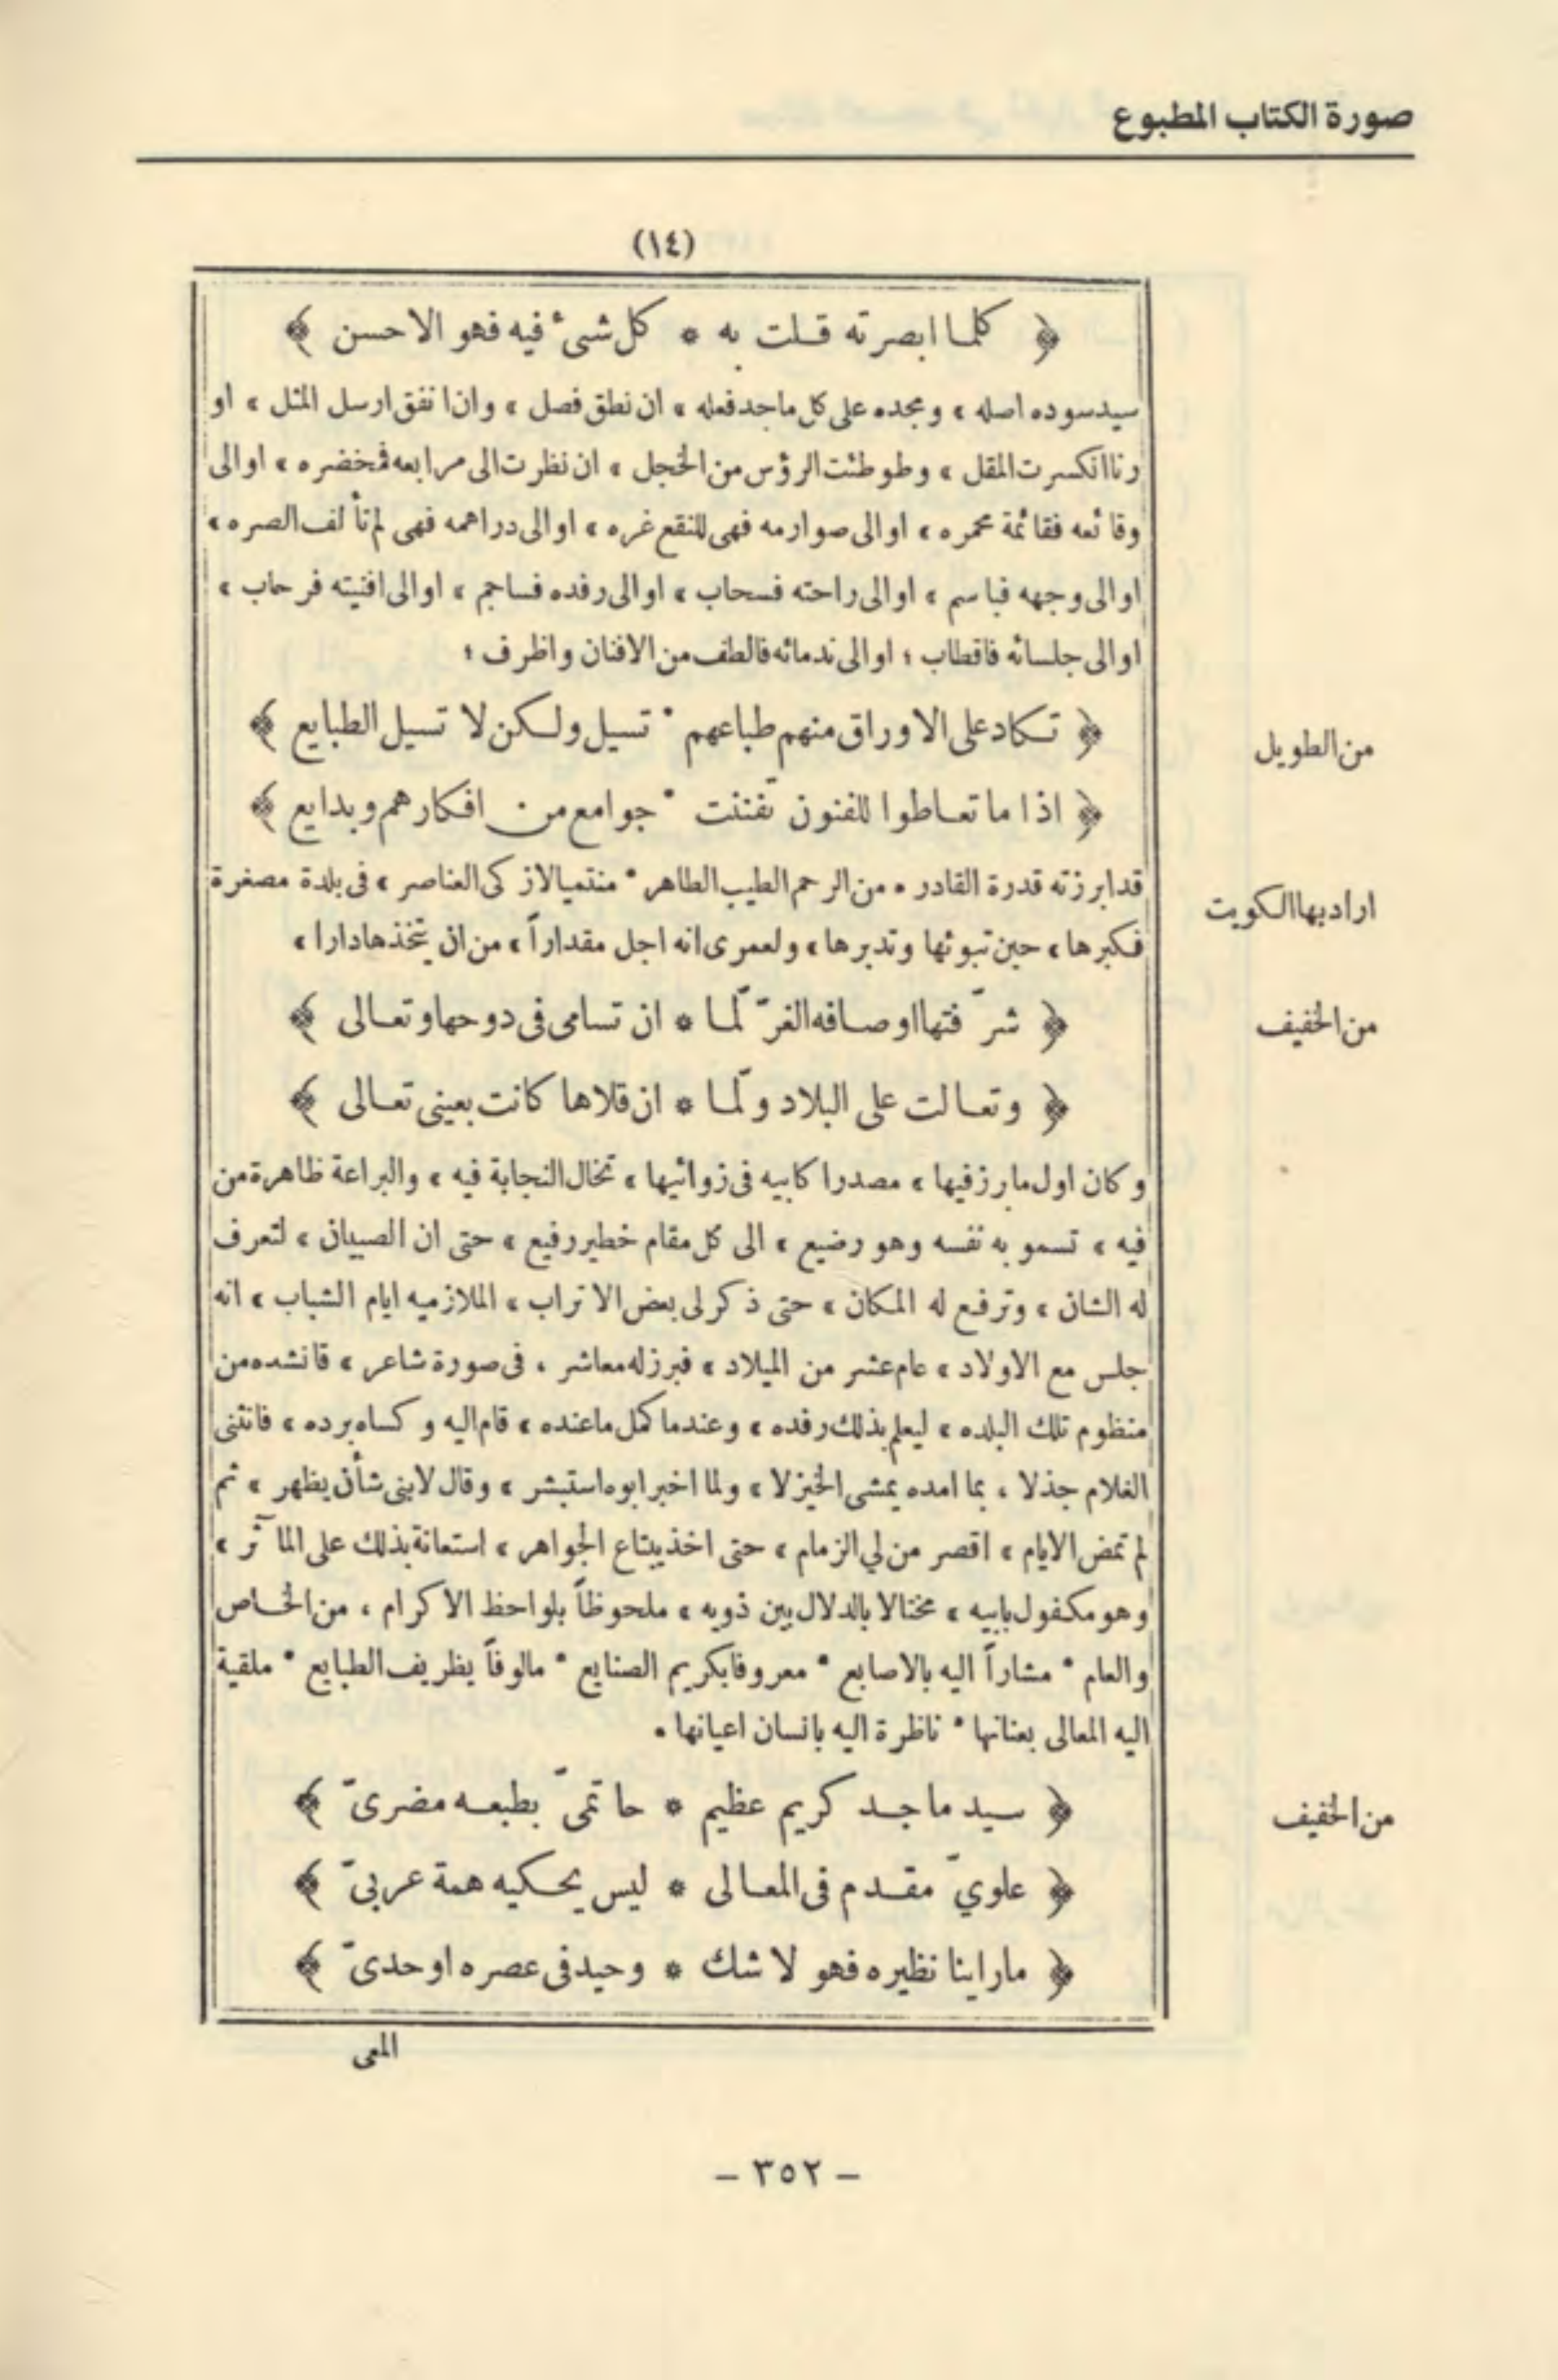 صورة الكتاب المطبوع
(١٤)
﴿ كلما ابصرته قلت به * كل شئ فيه فهو الاحسن ﴾
سيد سوده اصله ، ومجده على كل ماجد فعله ، ان نطق فصل ، وان اتفق ارسل المثل ، او
رنا انكسرت المقل ، وطوطئت الرؤس من الخجل ، ان نظرت الى مرابعه فمخضره ، او الى
وقائعه فقائمة محمره ، او الى صوارمه فهى للنقع غره ، او الى دراهمه فهى لم تألف الصره ،
او الى وجهه فباسم ، او الى راحته فسحاب ، او الى رفده فساجم ، او الى افنيته فرحاب ،
او الى جلسائه فاقطاب ؛ او الى ندمائه فالطف من الافنان واظرف ؛
﴿ تكاد على الاوراق منهم طباعهم * تسيل ولكن لا تسيل الطبايع ﴾
من الطويل
﴿ اذا ما تعاطوا للفنون تفننت * جوامع من افكارهم وبدايع ﴾
قد ابرزته قدرة القادر * من الرحم الطيب الطاهر * منتميا لازكى العناصر ، فى بلدة مصغرة
اراد بها الكويت
فكبرها ، حين تبوئها وتدبرها ، ولعمرى انه اجل مقداراً ، من ان يتخذها دارا ،
﴿ شرّفتها اوصافه الغرّ لمّا * ان تسامى فى دوحها وتعالى ﴾
من الخفيف
﴿ وتعالت على البلاد ولمّا * ان قلاها كانت بعينى تعالى ﴾
وكان اول ما برز فيها ، مصدرا كابيه فى زوائيها ، تخال النجابة فيه ، والبراعة ظاهرة من
فيه ، تسمو به نفسه وهو رضيع ، الى كل مقام خطير رفيع ، حتى ان الصبيان ، لتعرف
له الشان ، وترفع له المكان ، حتى ذكر لى بعض الاتراب ، الملازميه ايام الشباب ، انه
جلس مع الاولاد ، عام عشر من الميلاد ، فبرز له معاشر ، فى صورة شاعر ، فانشده من
منظوم تلك البلده ، ليعلم بذلك رفده ، وعندما كمل ما عنده ، قام اليه وكساه برده ، فانثنى
الغلام جذلا ، بما امده يمشى الخيزلا ، ولما اخبر ابوه استبشر ، وقال لابنى شأن يظهر ، ثم
لم تمض الايام ، اقصر من لي الزمام ، حتى اخذ يبتاع الجواهر ، استعانة بذلك على المآثر ،
وهو مكفول بابيه ، مختالا بالدلال بين ذويه ، ملحوظاً بلواحظ الاكرام ، من الخاص
والعام * مشاراً اليه بالاصابع * معروفا بكريم الصنايع * مالوفاً بظريف الطبايع * ملقية
اليه المعالى بعنانها * ناظرة اليه بانسان اعيانها .
﴿ سيد ماجد كريم عظيم * حاتمىّ بطبعه مضرىّ ﴾
من الخفيف
﴿ علويّ مقدم فى المعالى * ليس يحكيه همة عربىّ ﴾
﴿ ما راينا نظيره فهو لا شك * وحيد فى عصره اوحدىّ ﴾
المعى
– ٣٥٢ –